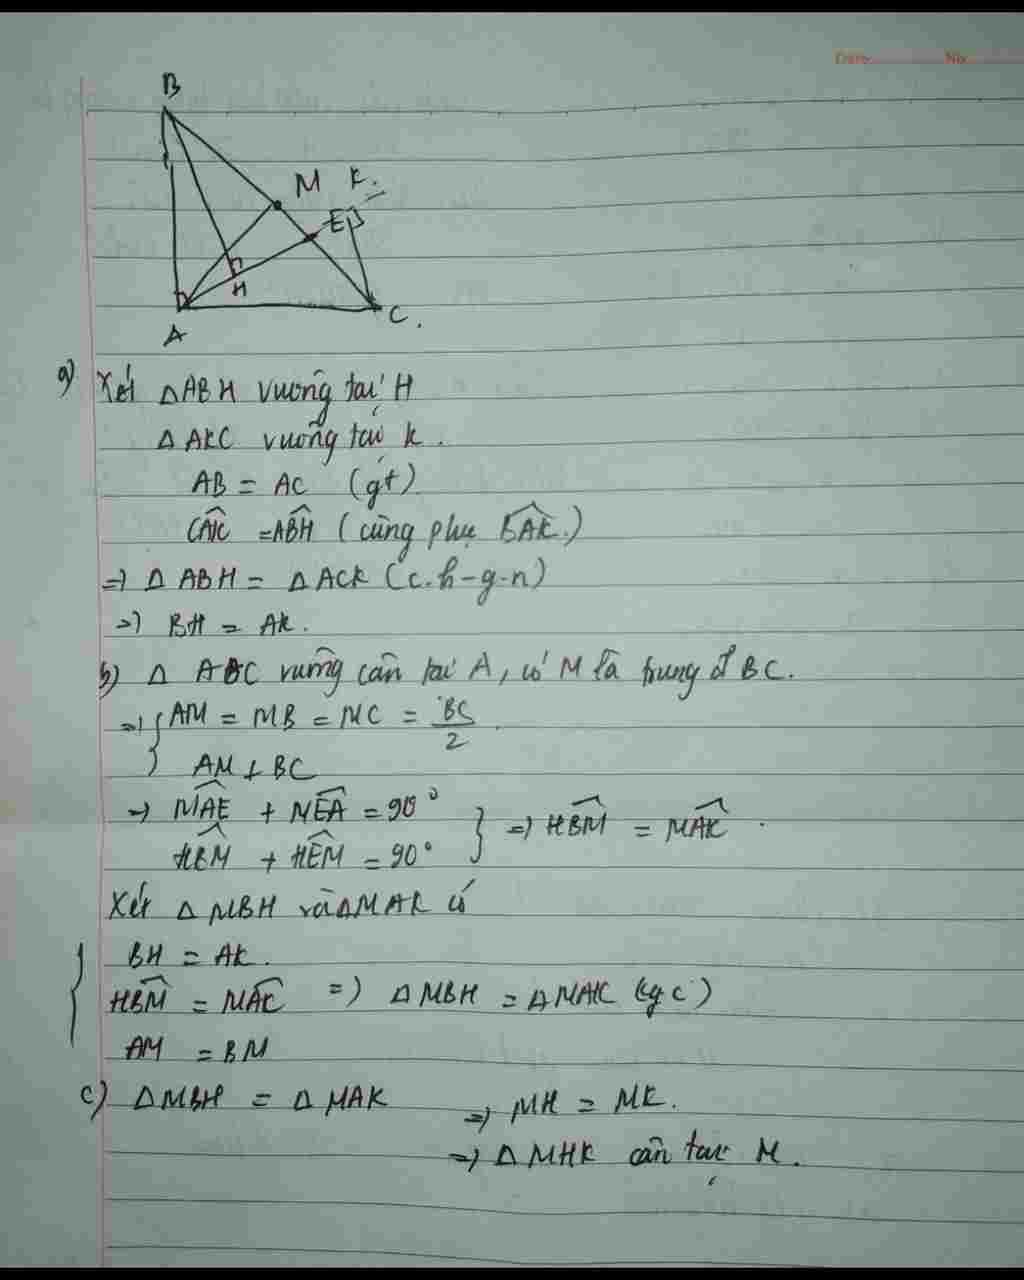 Date No
B
M K.
E
H
A
C.
a) Xét △ABH vuông tại H
△AKC vuông tại K.
AB = AC (gt)
CAK = ABH (cùng phụ BAK.)
=) △ABH = △ACK (c.h-g-n)
=) BH = AK.
b) △ ABC vuông cân tại A, có M là trung đ BC.
=) { AM = MB = MC = BC/2
AM ⊥ BC
=) MAE + MEA = 90°
HBM + HEM = 90° } =) HBM = MAK.
Xét △MBH và △MAK có
{ BH = AK.
HBM = MAK =) △MBH = △MAK (cgc)
AM = BM
c) △MBH = △MAK =) MH = MK.
=) △MHK cân tại M.